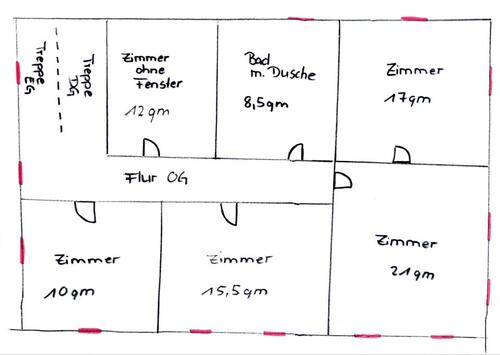 Treppe EG
Treppe DG
Zimmer
ohne
Fenster
12qm
Bad
m. Dusche
8,5qm
Zimmer
17qm
Flur OG
Zimmer
10qm
Zimmer
15,5qm
Zimmer
21qm